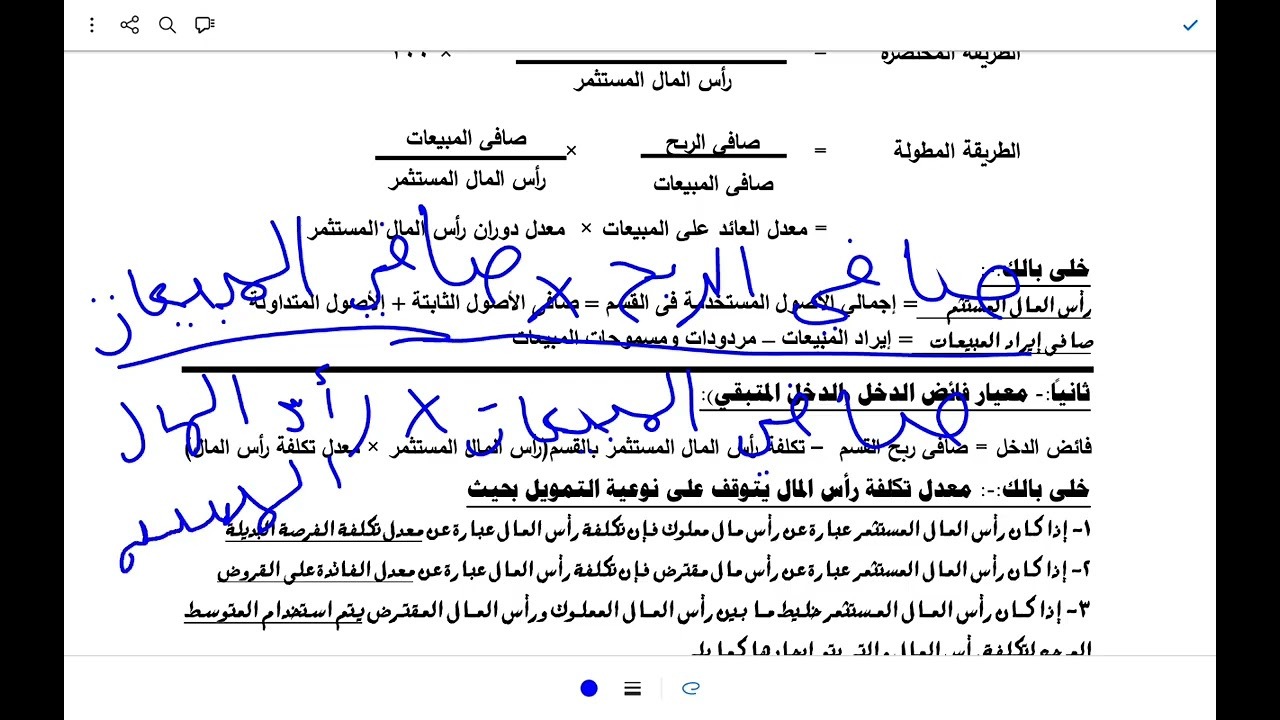 الطريقة المختصرة = × ١٠٠
رأس المال المستثمر
الطريقة المطولة = صافى الربح × صافى المبيعات
صافى المبيعات رأس المال المستثمر
= معدل العائد على المبيعات × معدل دوران رأس المال المستثمر
صافى الربح × صافى المبيعات
خلى بالك:-
رأس المال المستثمر = إجمالي الأصول المستخدمة فى القسم = صافى الأصول الثابتة + الأصول المتداولة
صافى إيراد المبيعات = إيراد المبيعات – مردودات ومسموحات المبيعات
ثانياً:- معيار فائض الدخل (الدخل المتبقي):
صافى المبيعات × رأس المال
فائض الدخل = صافى ربح القسم – تكلفة رأس المال المستثمر بالقسم(رأس المال المستثمر × معدل تكلفة رأس المال)
خلى بالك:-: معدل تكلفة رأس المال يتوقف على نوعية التمويل بحيث
١- إذا كان رأس المال المستثمر عبارة عن رأس مال مملوك فإن تكلفة رأس المال عبارة عن معدل تكلفة الفرصة البديلة
٢- إذا كان رأس المال المستثمر عبارة عن رأس مال مقترض فإن تكلفة رأس المال عبارة عن معدل الفائدة على القروض
٣- إذا كان رأس المال المستثمر خليط ما بين رأس المال المملوك ورأس المال المقترض يتم استخدام المتوسط